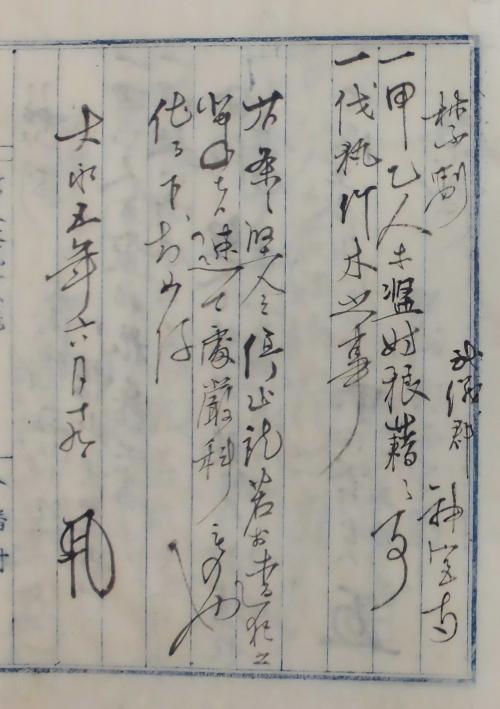 禁制 武儀郡
一甲乙人等濫妨狼藉之事
一伐執竹木之事
右条々堅令停止訖若於違犯之
輩者速可處嚴科
仍下知如件
大永五年六月十九